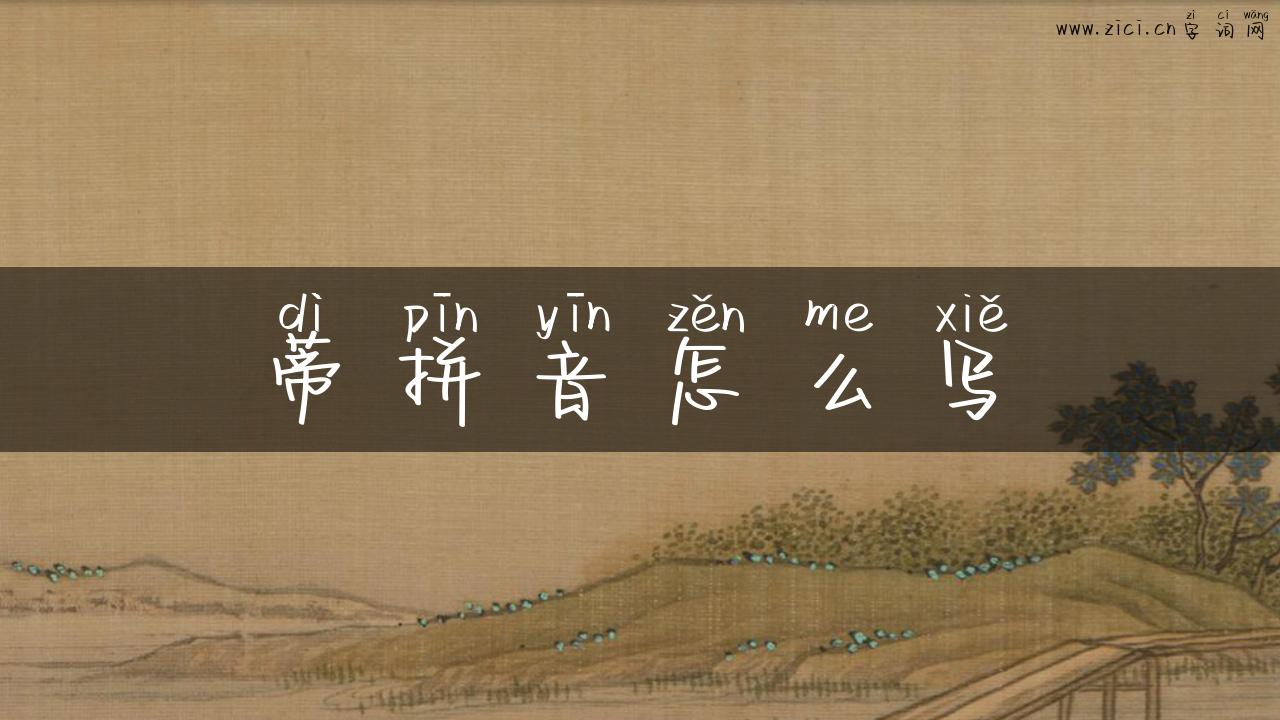 zì cí wǎng
www.zici.cn字词网
dì pīn yīn zěn me xiě
蒂拼音怎么写